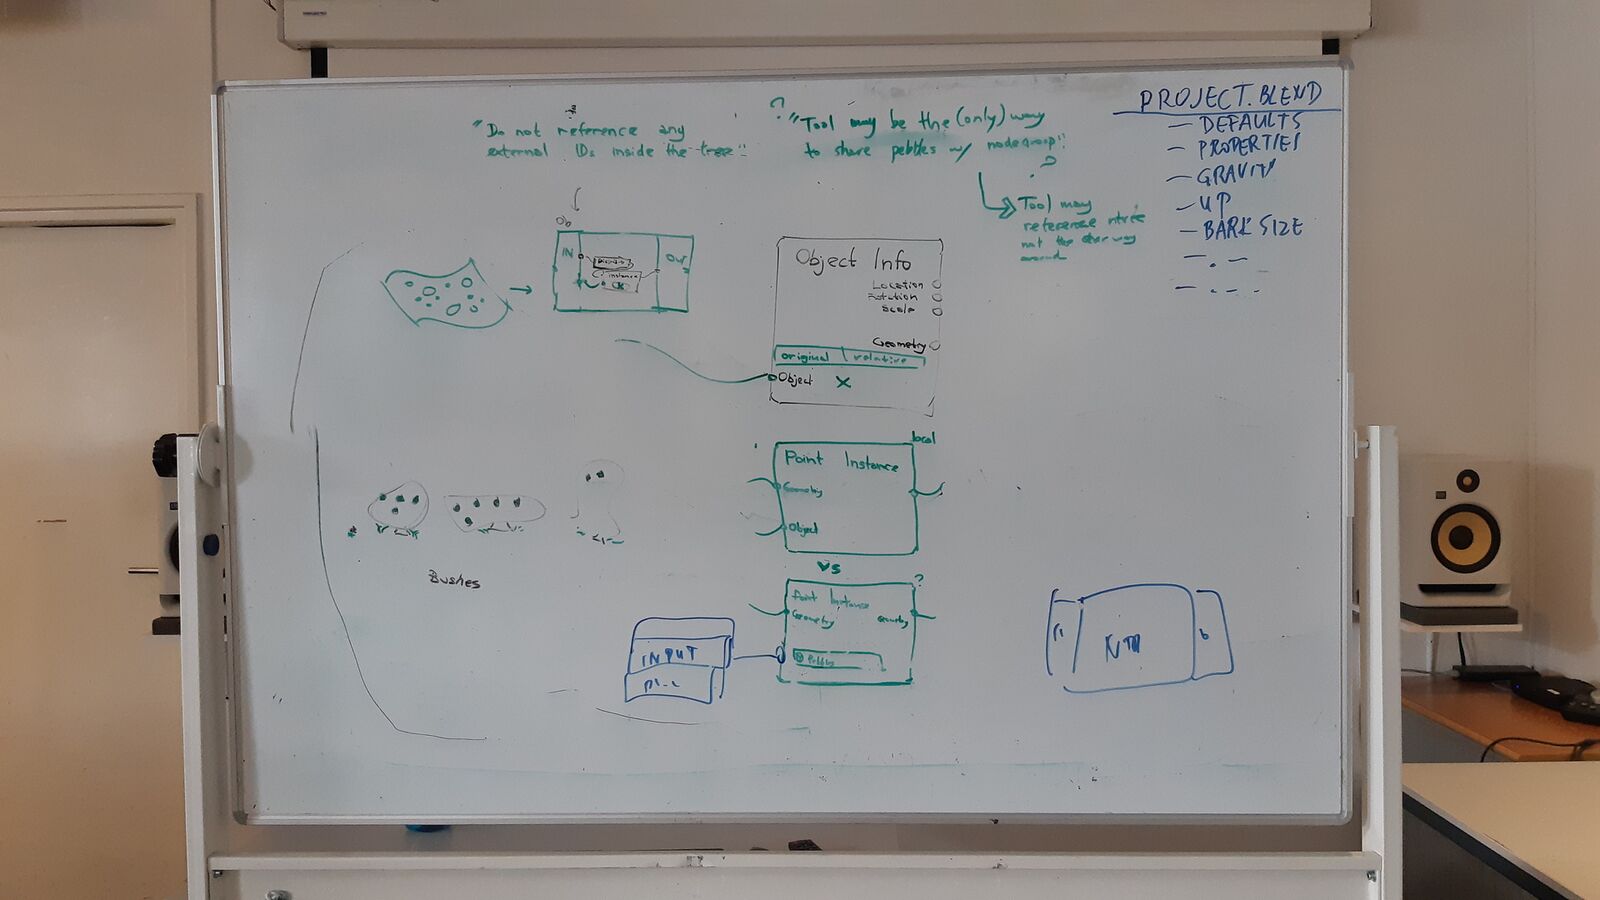 "Do not reference any
external IDs inside the tree"
?
"Tool may be the (only) way
to share pebbles w/ nodegroup"
?
Tool may
reference ntree
not the other way
around
PROJECT.BLEND
— DEFAULTS
— PROPERTIES
— GRAVITY
— UP
— BARK SIZE
— . —
— . . .
Ob
IN
instance
OUT
Object Info
Location
Rotation
Scale
Geometry
original
relative
Object X
local
Point Instance
Geometry
Object
vs
?
Point Instance
Geometry
Geometry
Pebbles
INPUT
Bushes